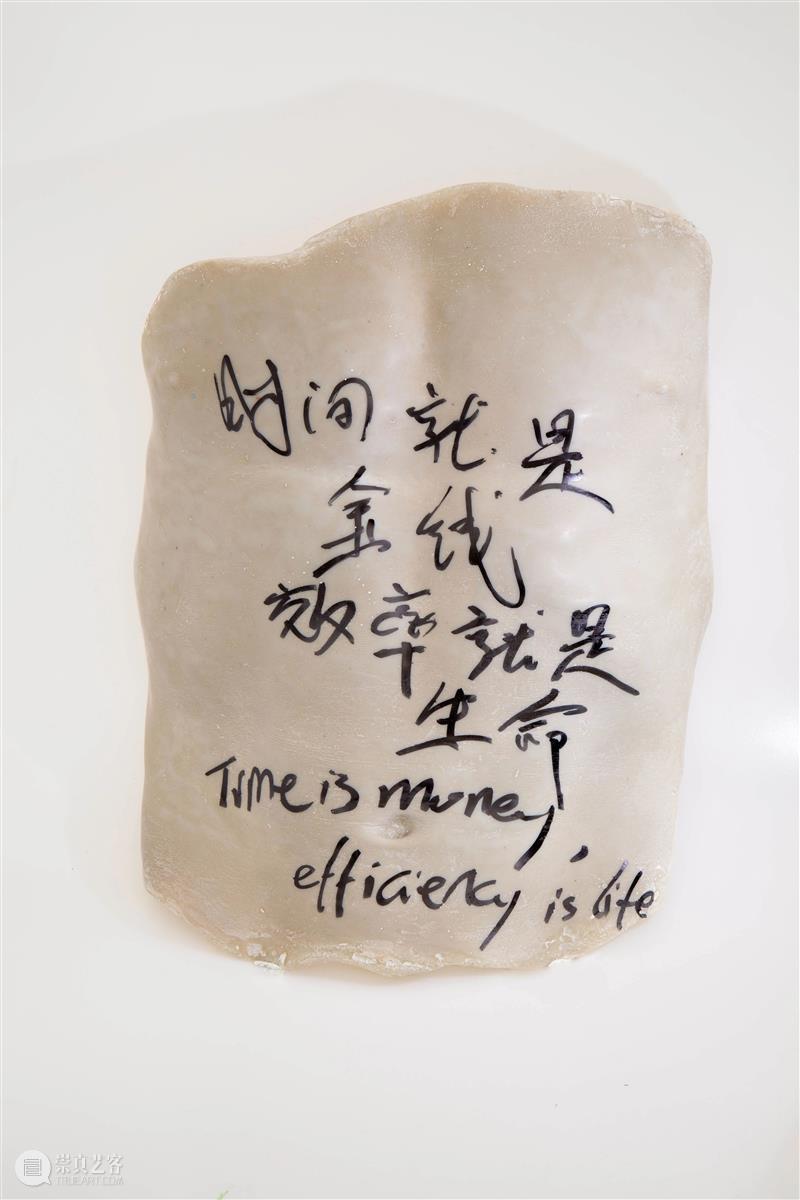 时间就是
金钱
效率就是
生命
Time is money,
efficiency is life
崇真艺客
WWW.TRUEART.COM